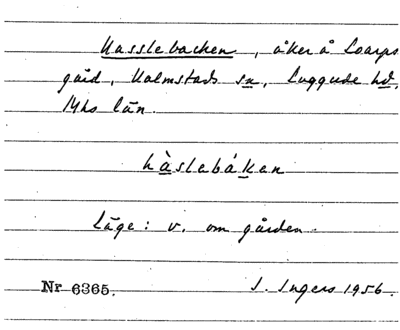 Hasslebacken, åker å Loarps
gård, Halmstads sn, Luggude hd,
Mhs län.
hàslebáken
Läge: v. om gården.
Nr 6365. I. Ingers 1956.